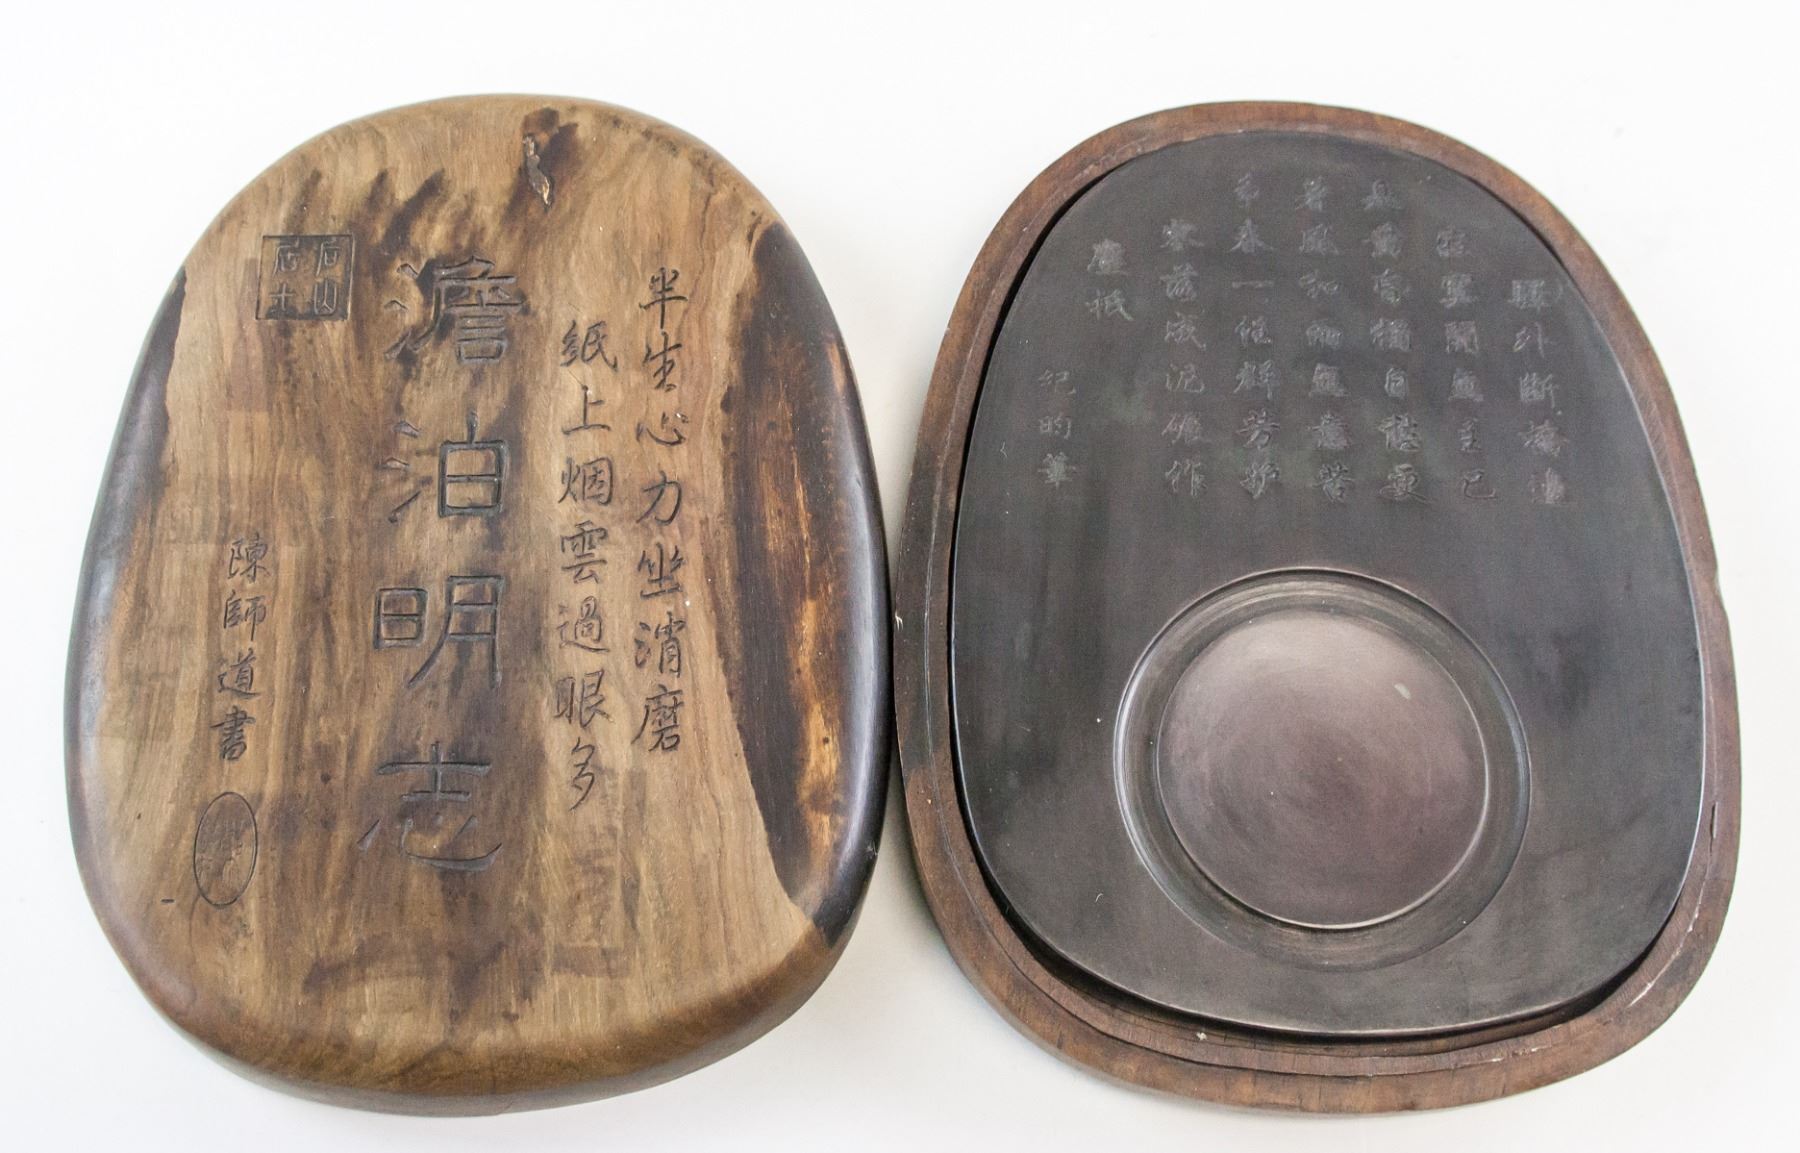 半生心力坐消磨
紙上烟雲過眼多
澹泊明志
陳師道書
驛外斷橋邊
寂寞開無主已
是黃昏獨自愁更
著風和雨無意苦
爭春一任群芳妒
零落成泥碾作
塵祗
紀昀筆